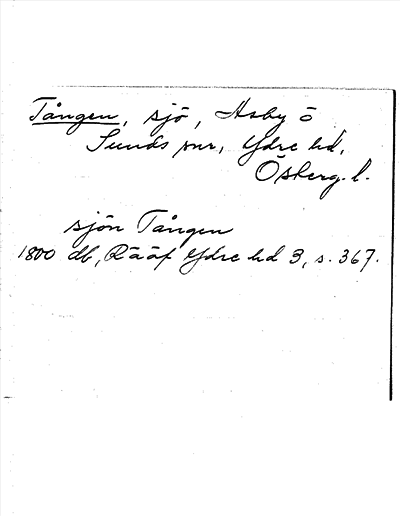 Tången, sjö, Asby o
Sunds snr, Ydre hd,
Österg. l.
sjön Tången
1800 db, Rääf Ydre hd 3, s. 367.